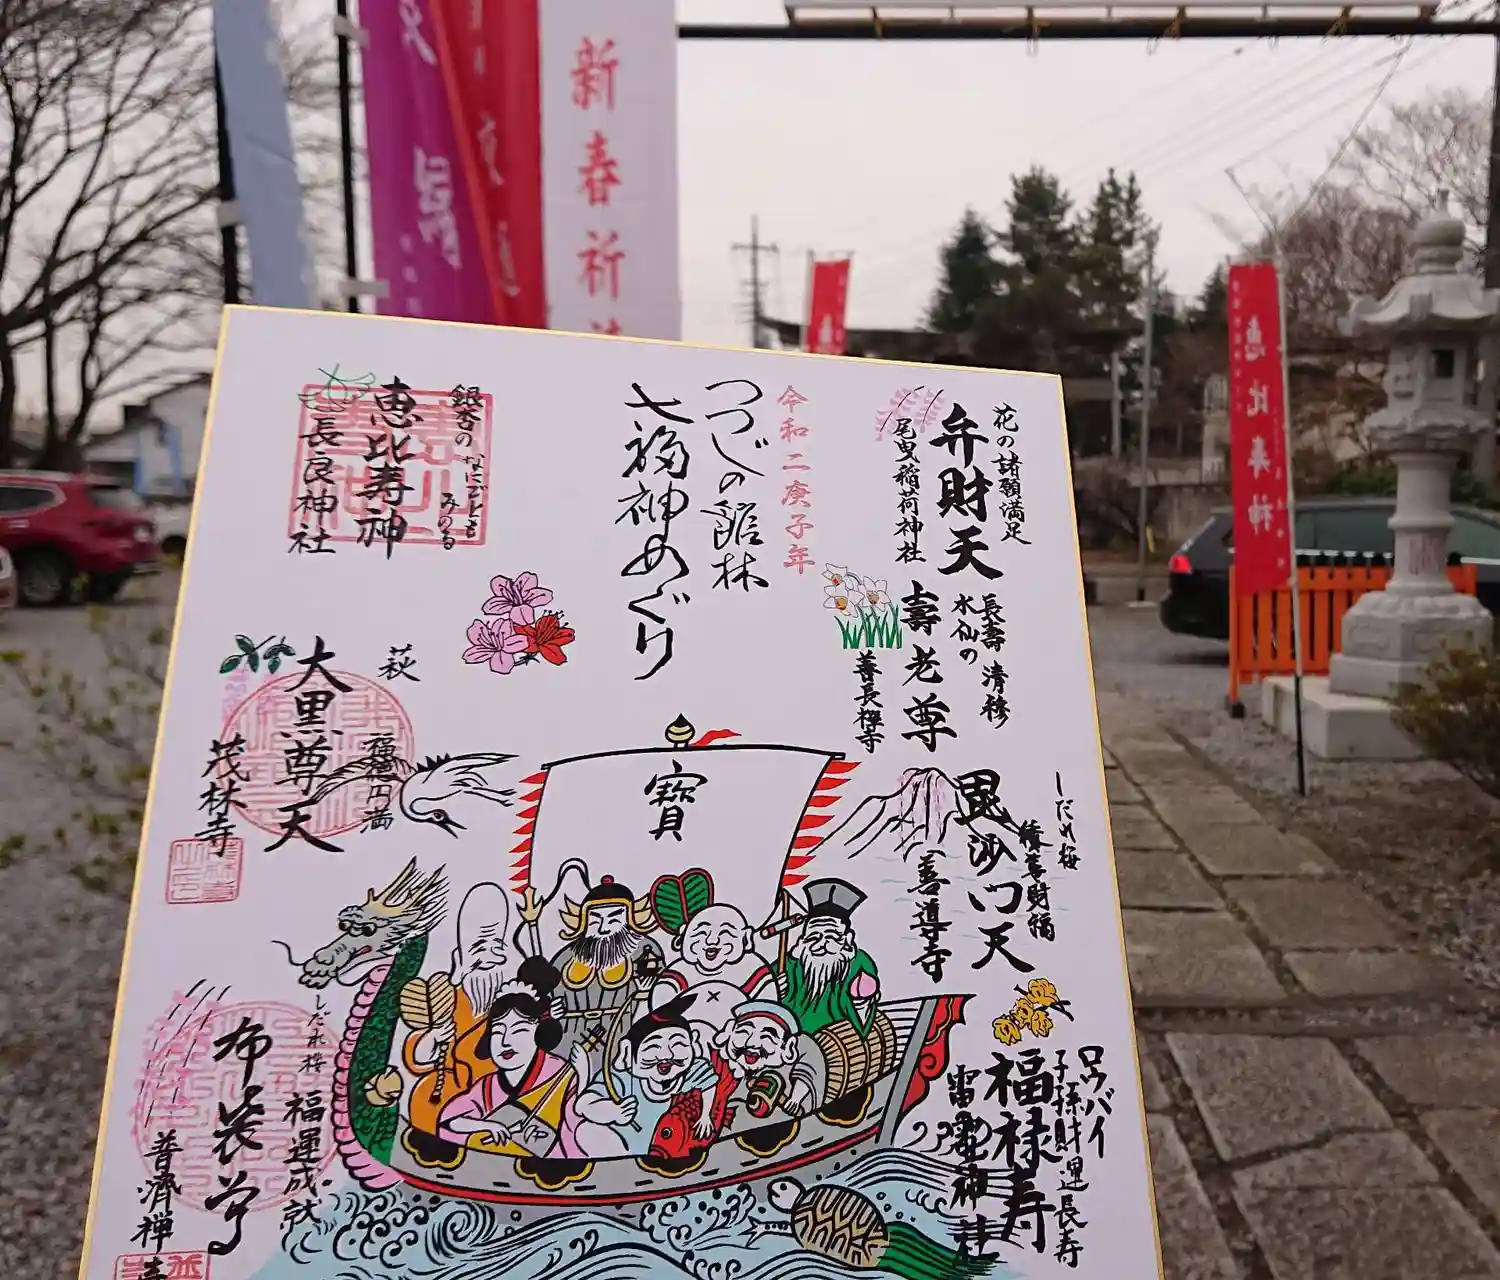 新春祈
恵比寿神
令和二庚子年
つつじの館林
七福神めぐり
花の諸願満足
弁財天
尾曳稲荷神社
長壽 清穆
水仙の
壽老尊
善長禅寺
しだれ桜
毘沙門天
善導寺
ロウバイ
子孫財運長寿
福禄寿
雷電神社
寶
銀杏の
なにごとも
みのる
恵比寿神
長良神社
萩
福徳円満
大黒尊天
茂林寺
しだれ桜
福運成就
布袋尊
普済禅寺